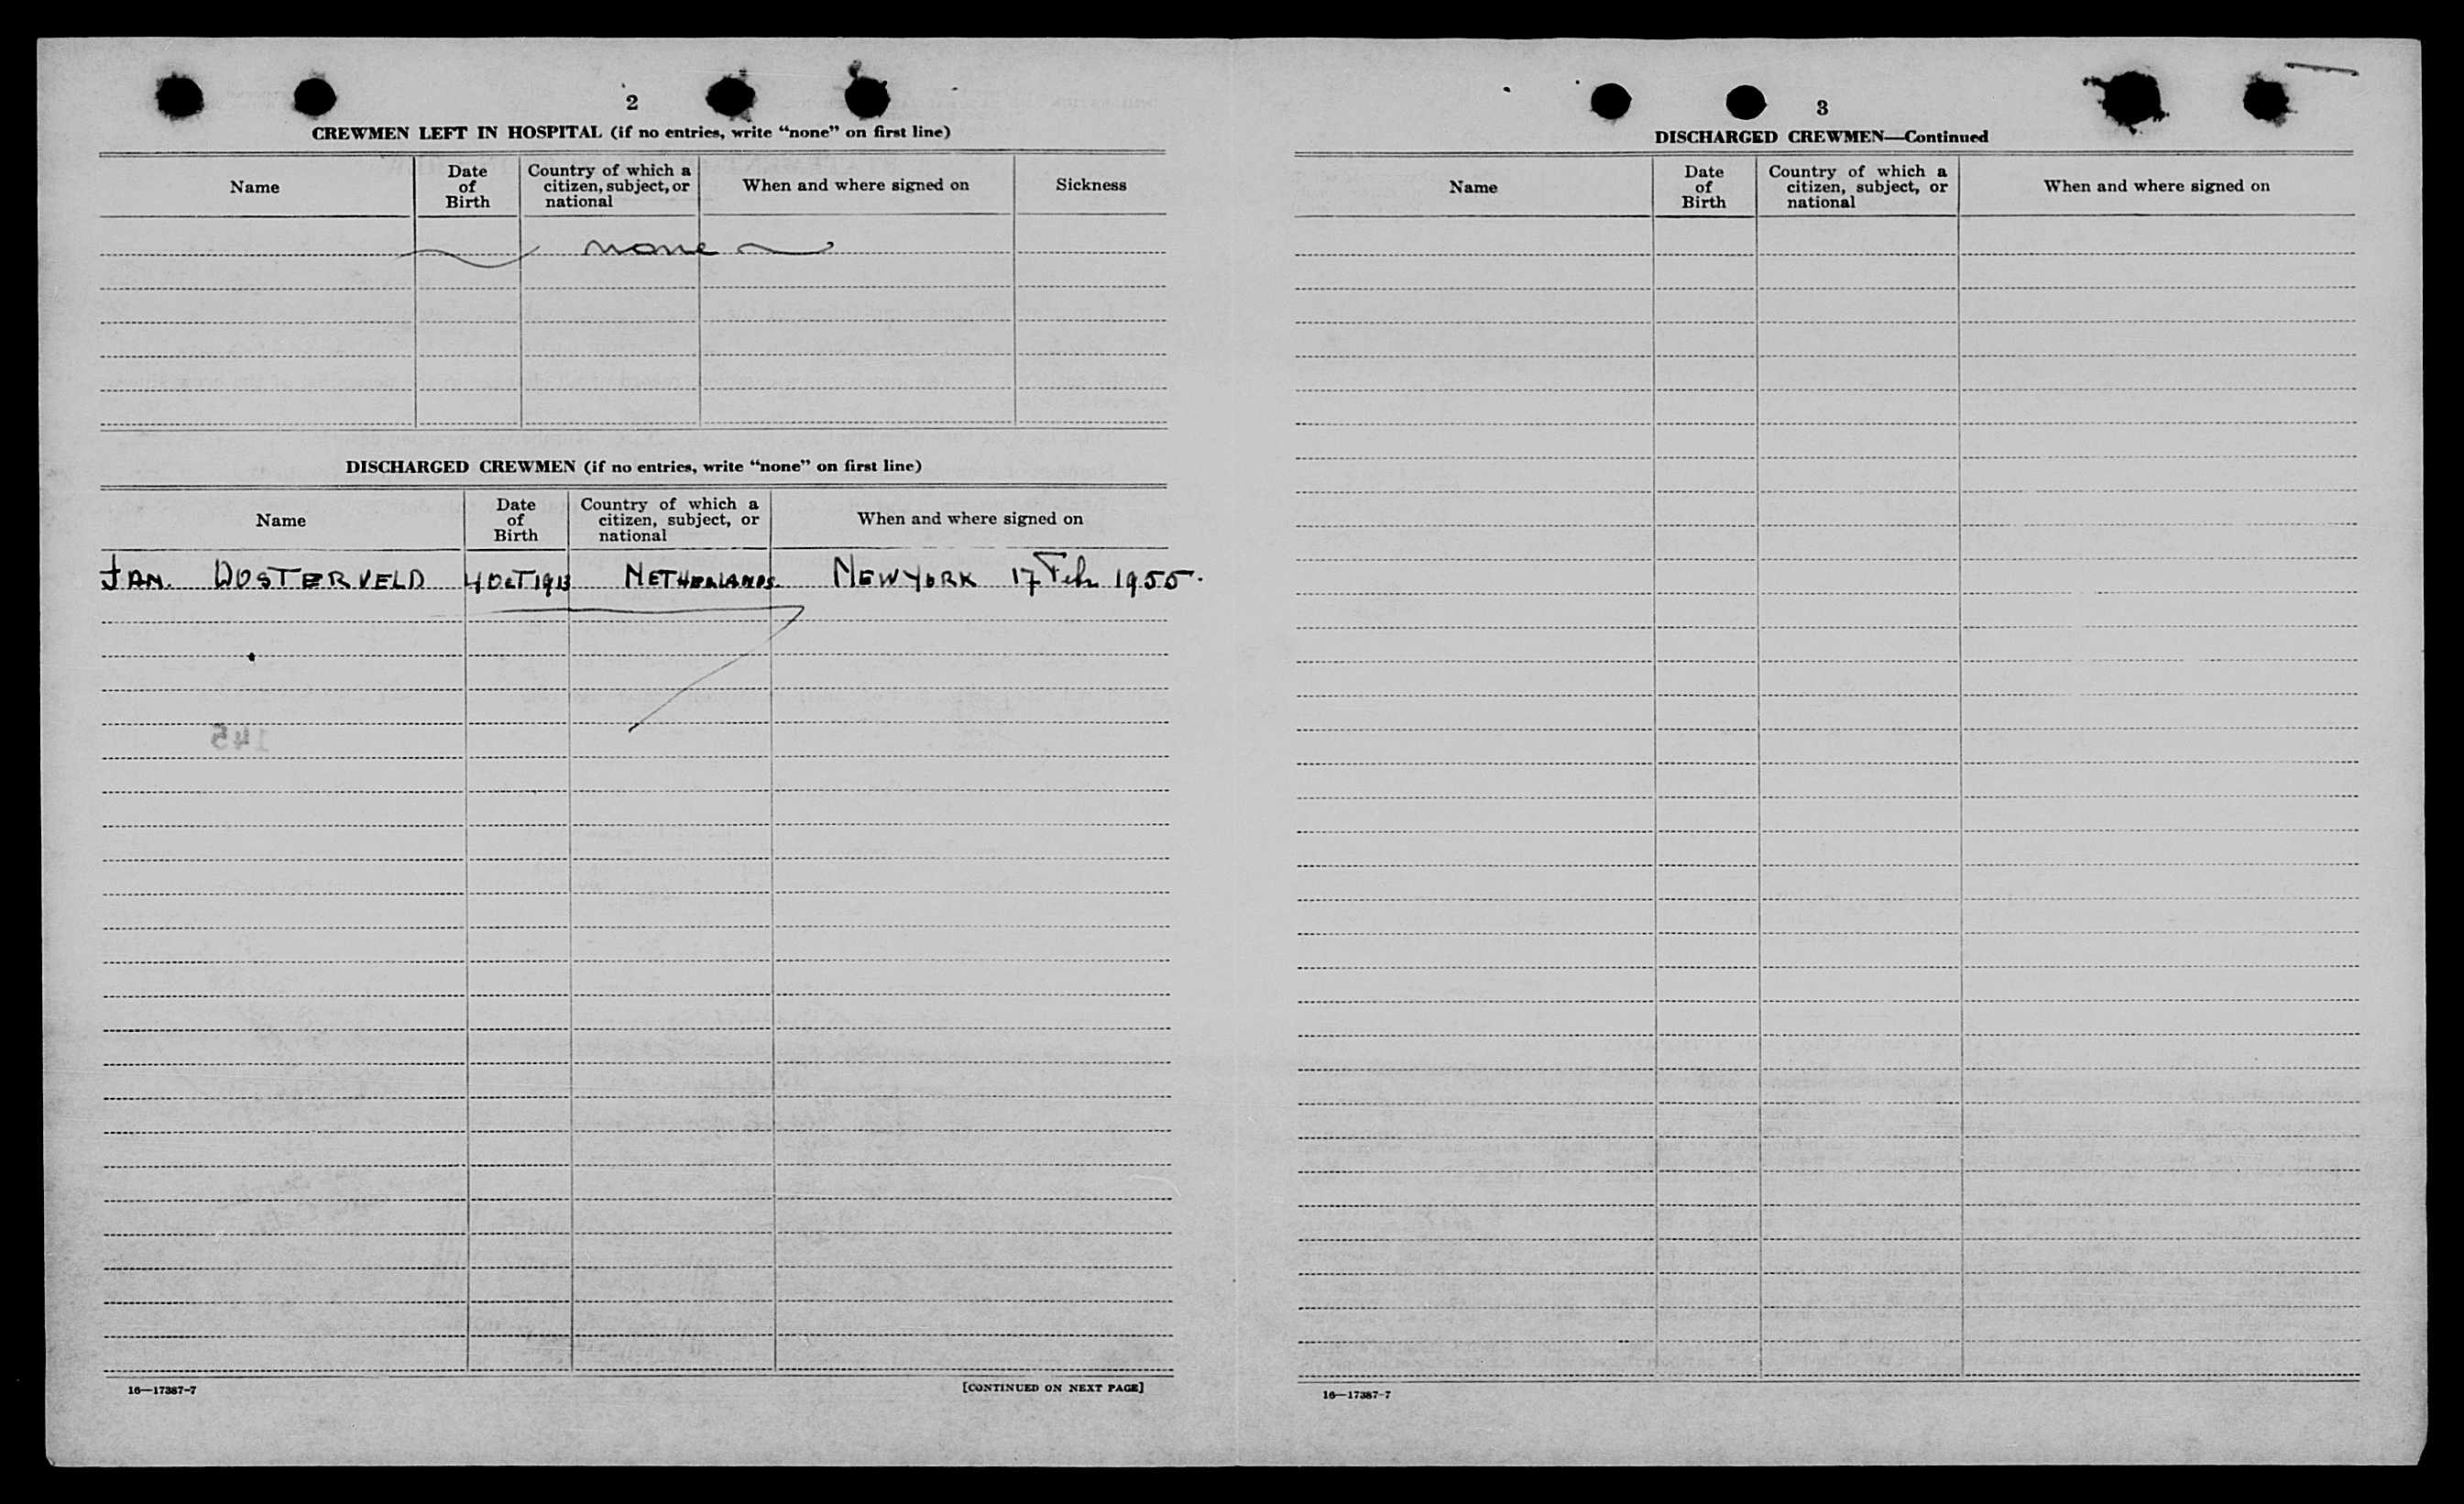 2
CREWMEN LEFT IN HOSPITAL (if no entries, write “none” on first line)
Name
Date of Birth
Country of which a citizen, subject, or national
When and where signed on
Sickness
none
DISCHARGED CREWMEN (if no entries, write “none” on first line)
Name
Date of Birth
Country of which a citizen, subject, or national
When and where signed on
JAN. OOSTERVELD 4 OCT 1913 NETHERLANDS. NEW YORK 17 Feb 1955.
145
16—17387-7
[CONTINUED ON NEXT PAGE]
3
DISCHARGED CREWMEN—Continued
Name
Date of Birth
Country of which a citizen, subject, or national
When and where signed on
16—17387-7